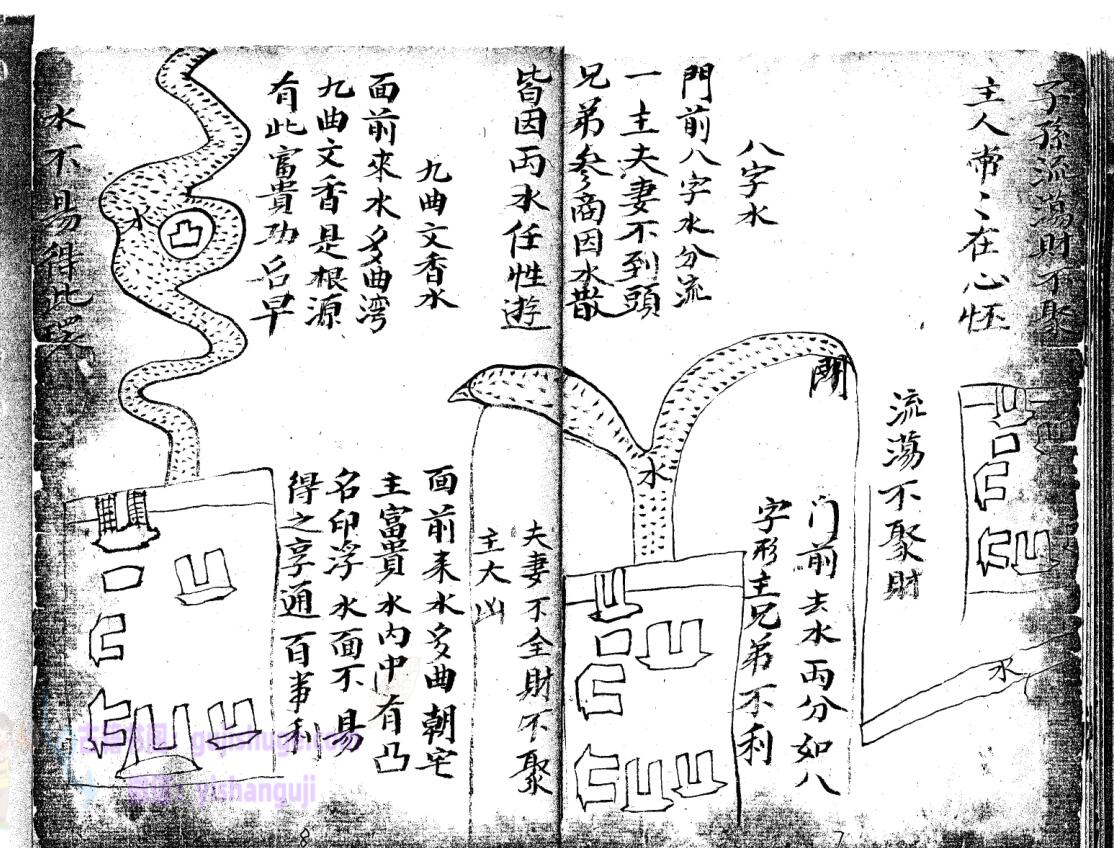 子孫流蕩財不聚
主人常〻在心怀
流蕩不聚財
水
八字水
門前八字水分流
一主夫妻不到頭
兄弟參商因水散
皆因兩水任性遊
水
门前去水兩分如八
字形主兄弟不利
夫妻不全財不聚
主大凶
九曲文香水
面前來水多曲湾
九曲文香是根源
有此富貴功名早
水不易得此環
水
凸
面前来水多曲朝宅
主富貴水内中有凸
名印浮水面不易
得之享通百事利
7
8
yishanguji